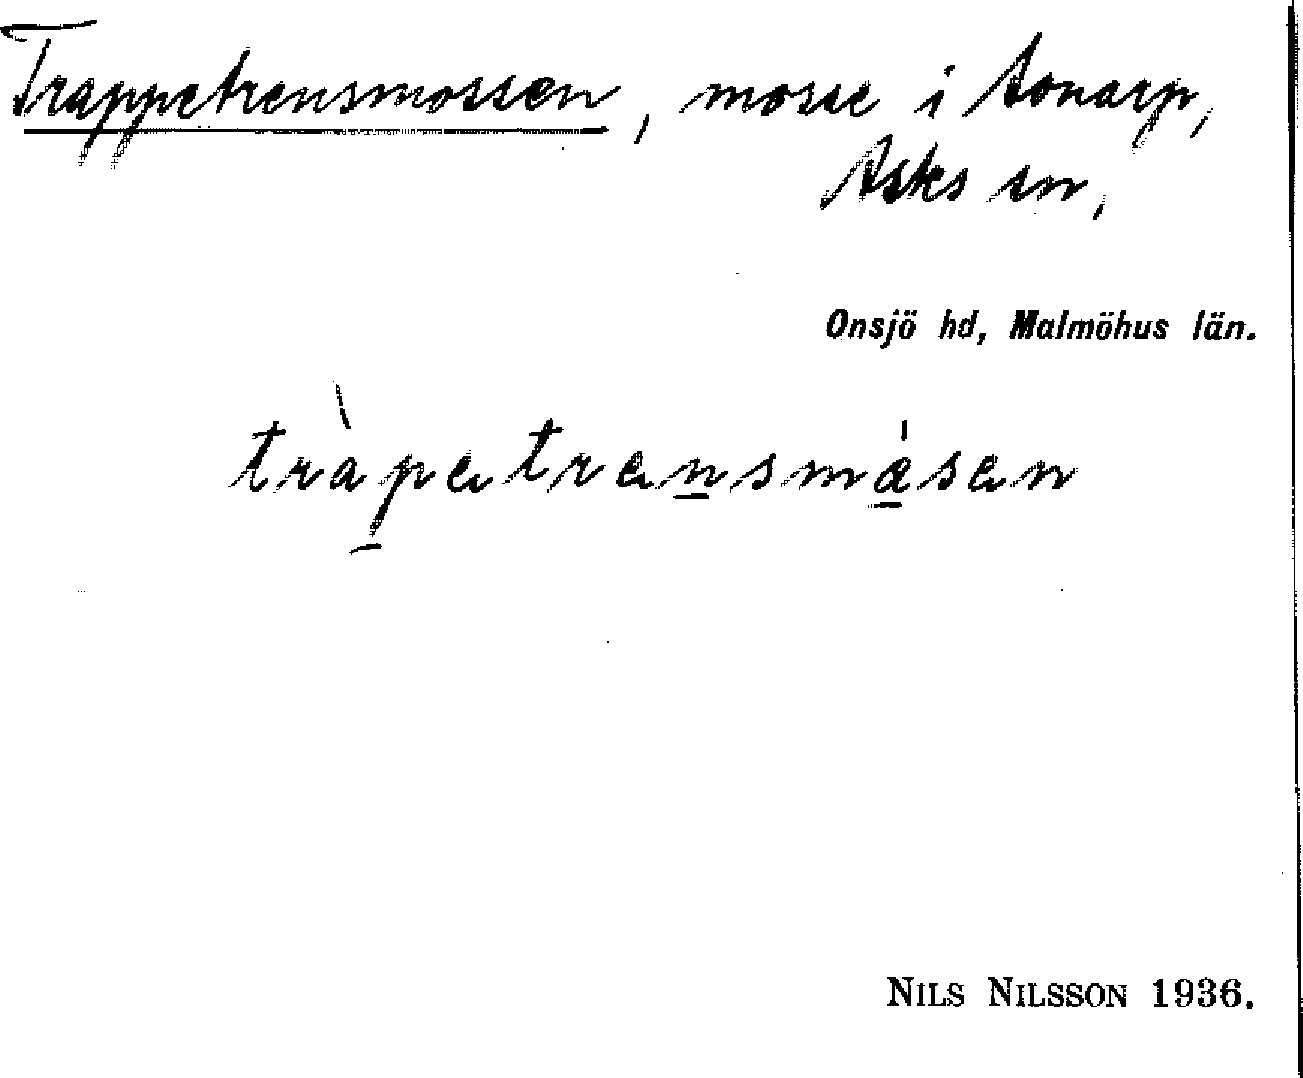 Trappetrensmossen, mosse i Aonarp,
Asks sn,
Onsjö hd, Malmöhus län.
tràpetrensmåsen
NILS NILSSON 1936.